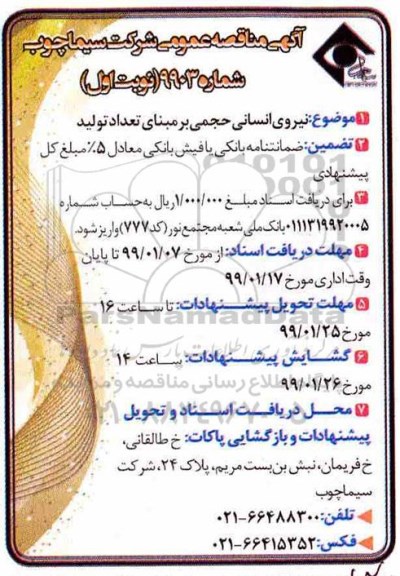 آگهی مناقصه عمومی شرکت سیماچوب
شماره ۹۹۰۳ (نوبت اول)
۱ موضوع: نیروی انسانی حجمی بر مبنای تعداد تولید
۲ تضمین: ضمانتنامه بانکی یا فیش بانکی معادل ۵٪ مبلغ کل
پیشنهادی
۳ برای دریافت اسناد مبلغ ۱/۰۰۰/۰۰۰ ریال به حساب شماره
۰۱۱۱۳۱۹۹۲۰۰۰۵ بانک ملی شعبه مجتمع نور (کد ۷۷۷) واریز شود.
۴ مهلت دریافت اسناد: از مورخ ۹۹/۰۱/۰۷ تا پایان
وقت اداری مورخ ۹۹/۰۱/۱۷
۵ مهلت تحویل پیشنهادات: تا ساعت ۱۶
مورخ ۹۹/۰۱/۲۵
۶ گشایش پیشنهادات: ساعت ۱۴
مورخ ۹۹/۰۱/۲۶
۷ محل دریافت اسناد و تحویل
پیشنهادات و بازگشایی پاکات: خ طالقانی،
خ فریمان، نبش بن بست مریم، پلاک ۲۴، شرکت
سیماچوب
تلفن: ۰۲۱-۶۶۴۸۸۳۰۰
فکس: ۰۲۱-۶۶۴۱۵۳۵۲
ParsNamadData